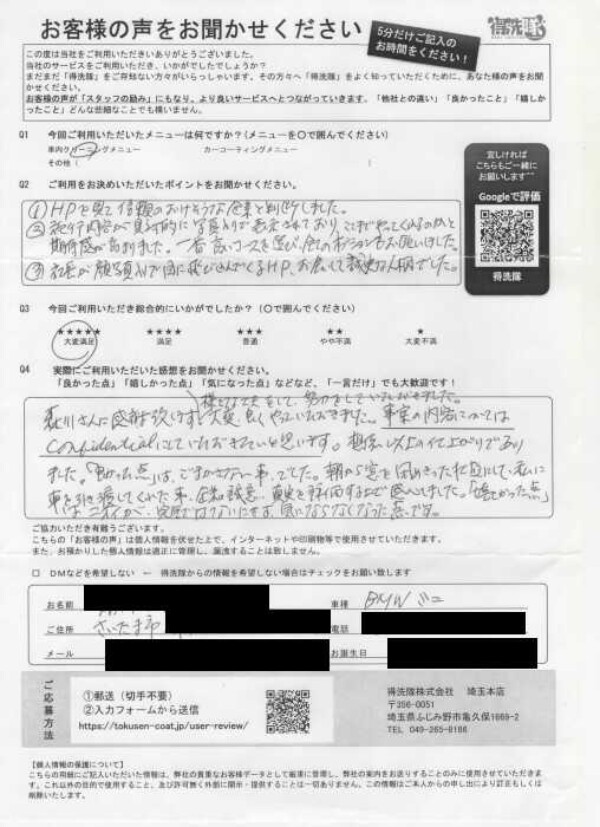 お客様の声をお聞かせください
5分だけご記入の
お時間をください!
得洗隊
この度は当社をご利用いただきありがとうございました。
当社のサービスをご利用いただき、いかがでしたでしょうか?
まだまだ「得洗隊」をご存知ない方々がいらっしゃいます。その方々へ「得洗隊」をよく知っていただくために、あなた様の声をお聞
かせください。
お客様の声が「スタッフの励み」にもなり、より良いサービスへとつながっていきます。「他社との違い」「良かったこと」「嬉しか
ったこと」どんな些細なことでも構いません。
Q1 今回ご利用いただいたメニューは何ですか?(メニューを〇で囲んでください)
車内クリーニングメニュー カーコーティングメニュー
その他( )
宜しければ
こちらもご一緒に
お願いします^^
Googleで評価
得洗隊
Q2 ご利用をお決めいただいたポイントをお聞かせください。
①HPで見て信頼のおけそうな企業と判断しました。
②施行内容が具体的に写真入りで表示されており、ここまでやってくれるのかと
期待感が高まりました。一番高いコースを選び、他のオプションもお願いしました。
③社長が顔写真入りで目に飛び込んでくるHP、お会いして誠実な人柄でした。
Q3 今回ご利用いただき総合的にいかがでしたか?(〇で囲んでください)
★★★★★ ★★★★ ★★★ ★★ ★
大変満足 満足 普通 やや不満 大変不満
Q4 実際にご利用いただいた感想をお聞かせください。
「良かった点」「嬉しかった点」「気になった点」などなど、「一言だけ」でも大歓迎です!
様々な工夫をして、努力をしていただきました。
さんに感謝致します。大変、良くやっていただきました。事案の内容については
Confidentialにしていただきたいと思います。想像以上の仕上がりであり
ました。「良かった点」は、ごまかさない事、でした。朝から窓を閉めきった状態にして、私に
車を引き渡してくれた事、
は
ご協力いただき有難うございます。
こちらの「お客様の声」は個人情報を伏せた上で、インターネットや印刷物等で使用させていただきます。
また、お預かりした個人情報は適正に管理し、漏洩することは致しません。
□ DMなどを希望しない ← 得洗隊からの情報を希望しない場合はチェックをお願い致します
お名前 車種 BMW ミニ
ご住所 さいたま市 電話
メール お誕生日
ご応募方法
①郵送(切手不要)
②入力フォームから送信
https://tokusen-coat.jp/user-review/
得洗隊株式会社 埼玉本店
〒356-0051
埼玉県ふじみ野市亀久保1669-2
TEL 049-265-8186
【個人情報の保護について】
こちらの用紙にご記入いただいた情報は、弊社の貴重なお客様データとして厳重に管理し、弊社の案内をお送りすることのみに使用させていただきま
す。これ以外の目的で使用すること、及び許可無く外部に開示・提供することは一切ありません。この情報はご本人からの申し出により訂正もしくは
削除いたします。